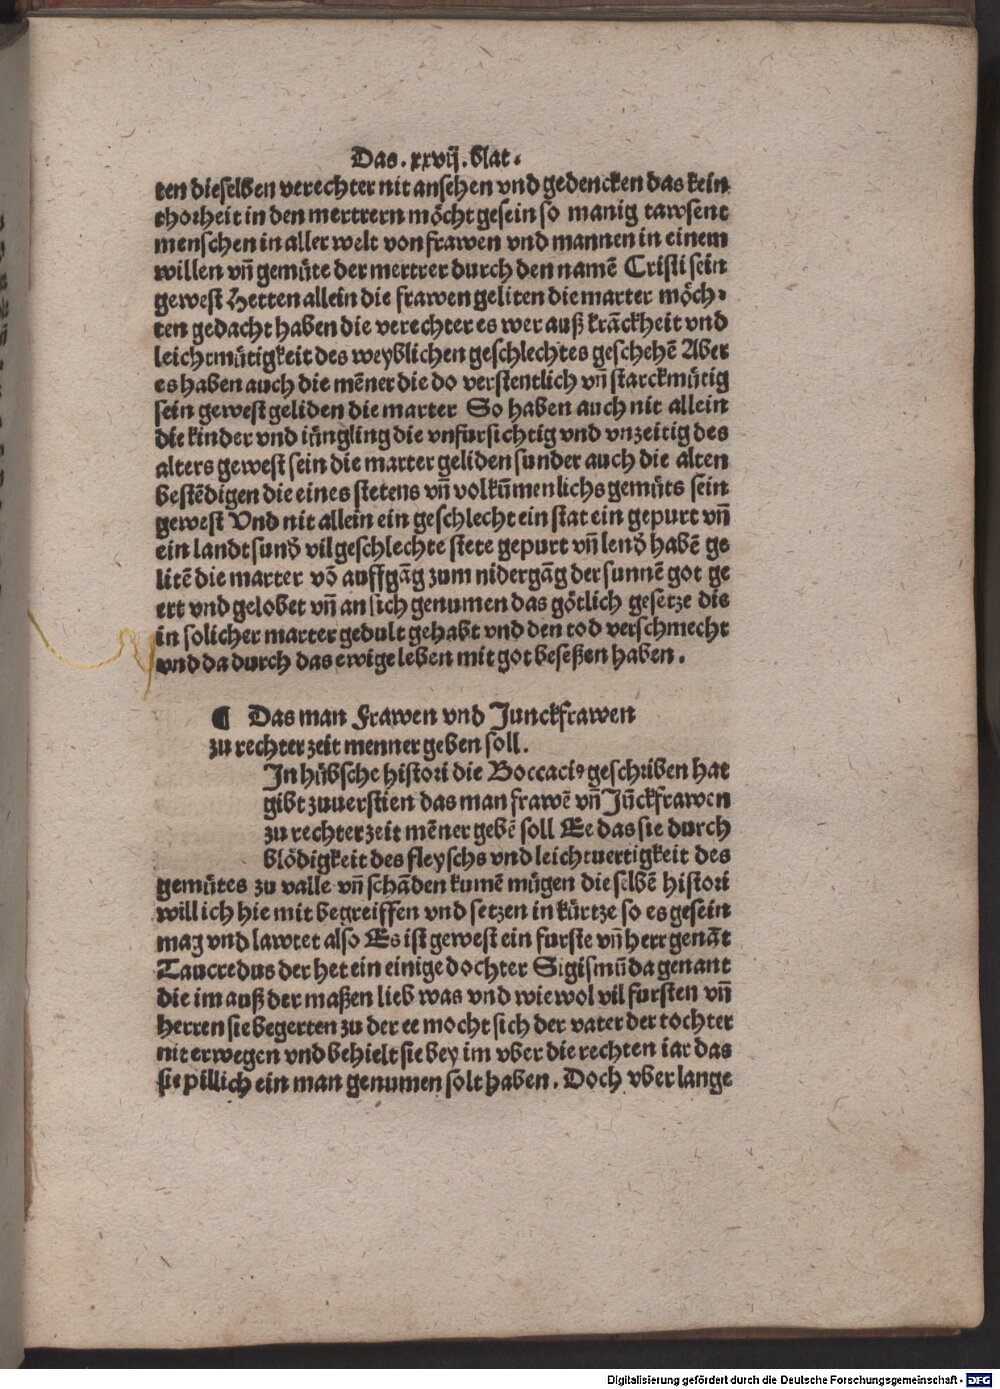 Das . xxvij . blat .
ten dieselben verechter nit ansehen vnd gedencken das kein
thorheit in den mertrern möcht gesein so manig tawsent
menschen in aller welt von frawen vnd mannen in einem
willen vn̄ gemüte der mertrer durch den namē Cristi sein
gewest Hetten allein die frawen geliten die marter möch-
ten gedacht haben die verechter es wer auß krāckheit vnd
leichtmütigkeit des weyblichen geschlechtes geschehē Aber
es haben auch die mēner die do verstentlich vn̄ starckmütig
sein gewest geliden die marter So haben auch nit allein
die kinder vnd iüngling die vnfursichtig vnd vnzeitig des
alters gewest sein die marter geliden sunder auch die alten
bestēdigen die eines stetens vn̄ volkūmenlichs gemüts sein
gewest Vnd nit allein ein geschlecht ein stat ein gepurt vn̄
ein landt sund̄ vil geschlechte stete gepurt vn̄ lend̄ habē ge
litē die marter vō auffgāg zum nidergāg der sunnē got ge
ert vnd gelobet vn̄ an sich genumen das götlich gesetze die
in solicher marter gedult gehabt vnd den tod verschmecht
vnd da durch das ewige leben mit got beseßen haben .
¶ Das man Frawen vnd Junckfrawen
zu rechter zeit menner geben soll .
In hübsche histori die Boccaciꝰ geschriben hat
gibt zuuerstien das man frawē vn̄ Jūckfrawen
zu rechter zeit mēner gebē soll Ee das sie durch
blödigkeit des fleyschs vnd leichtuertigkeit des
gemütes zu valle vn̄ schāden kumē mügen die selbē histori
will ich hie mit begreiffen vnd setzen in kürtze so es gesein
mag vnd lawtet also Es ist gewest ein furste vn̄ herr genāt
Taucredus der het ein einige dochter Sigismūda genant
die im auß der maßen lieb was vnd wie wol vil fursten vn̄
herren sie begerten zu der ee mocht sich der vater der tochter
nit erwegen vnd behielt sie bey im vber die rechten iar das
sie pillich ein man genumen solt haben . Doch vber lange
Digitalisierung gefördert durch die Deutsche Forschungsgemeinschaft - DFG